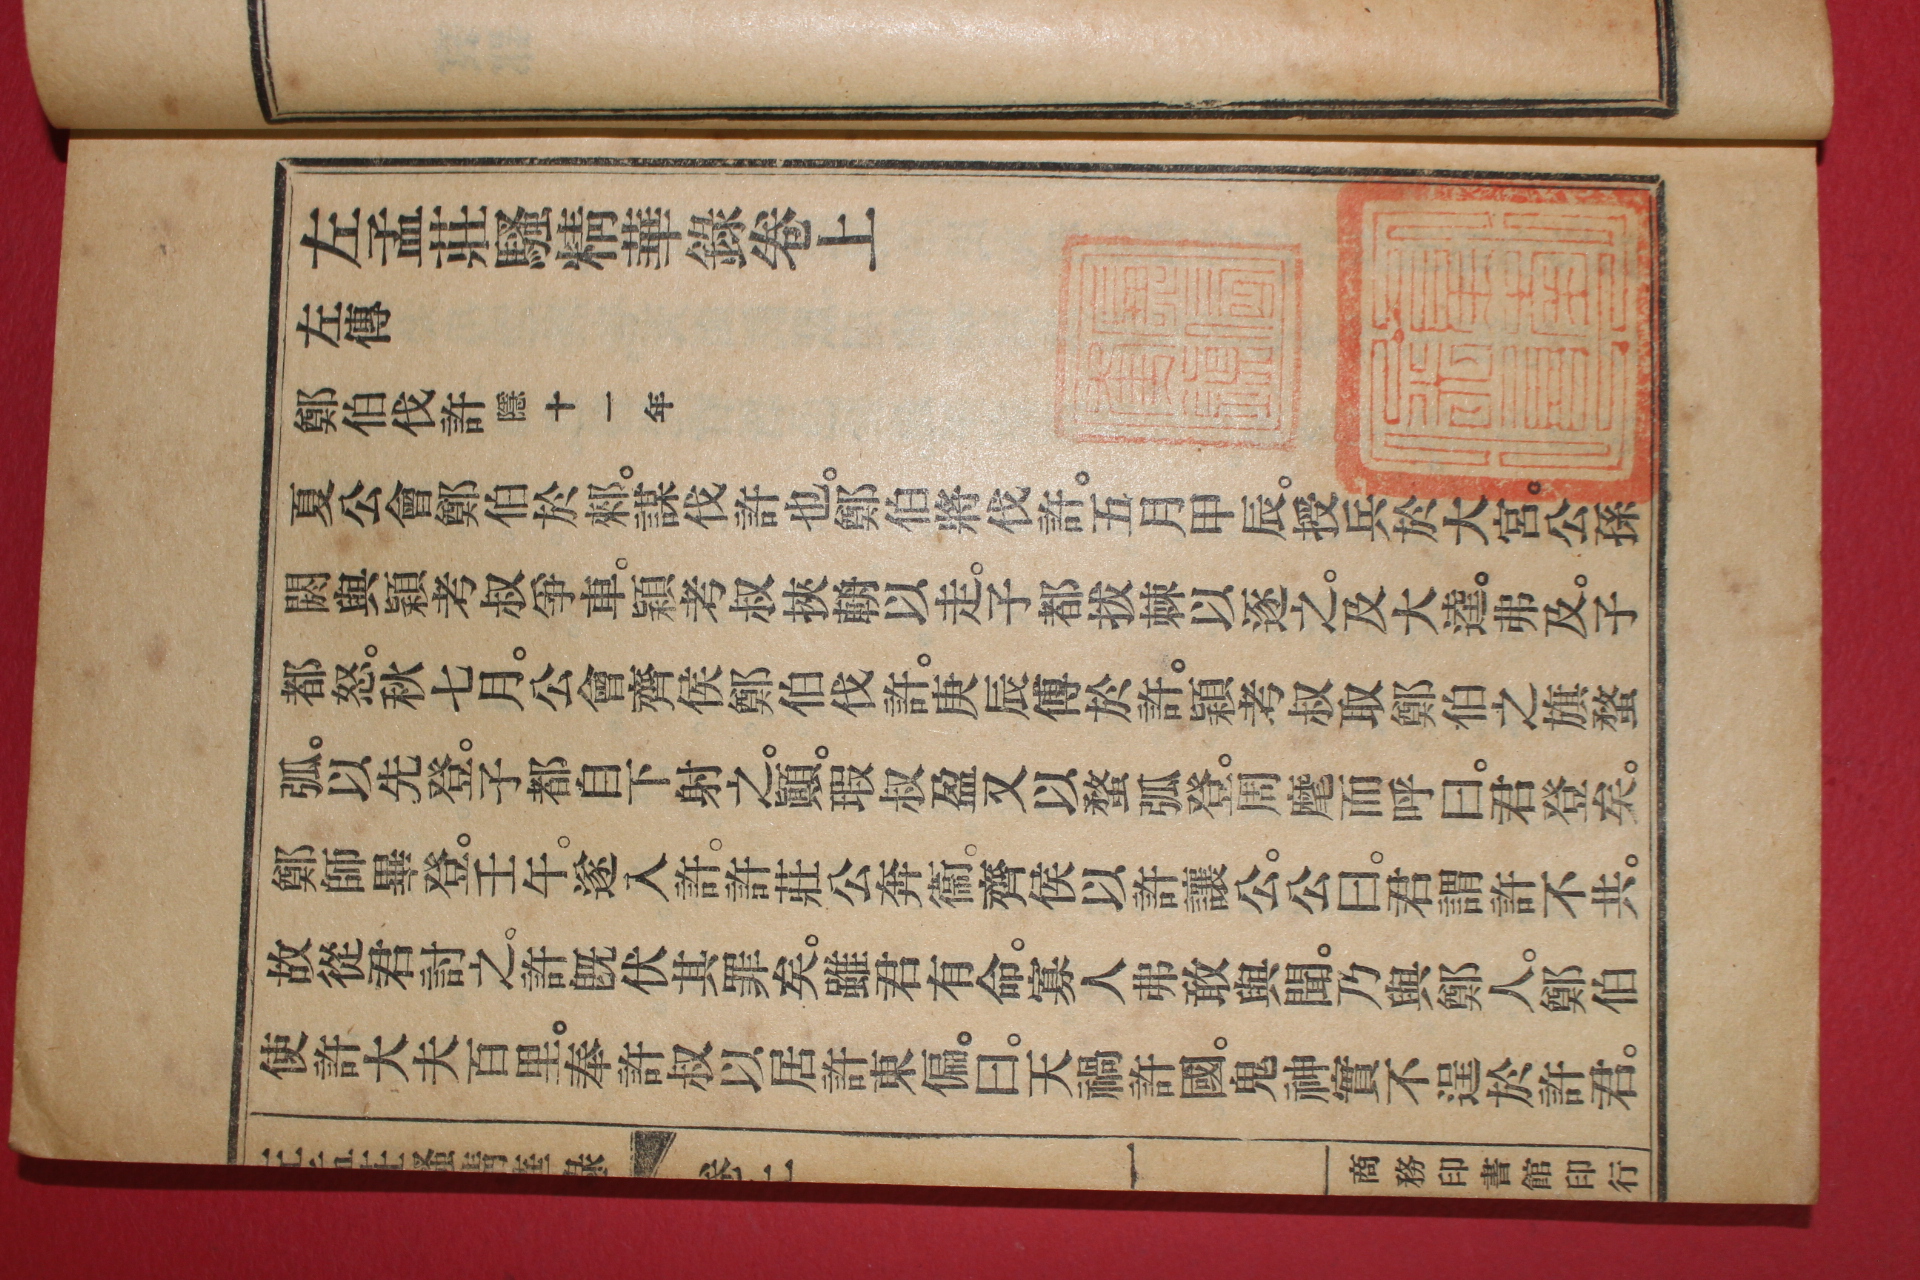 左孟莊騷精華錄卷上
左傳
鄭伯伐許 隱十一年
夏公會鄭伯於郲。謀伐許也。鄭伯將伐許。五月甲辰。授兵於大宮。公孫
閼與潁考叔爭車。潁考叔挾輈以走。子都拔棘以逐之。及大逵。弗及。子
都怒。秋七月。公會齊侯鄭伯伐許。庚辰傅於許。潁考叔取鄭伯之旗蝥
弧。以先登。子都自下射之。顚。瑕叔盈又以蝥弧登。周麾而呼曰。君登矣。
鄭師畢登。壬午。遂入許。許莊公奔衞。齊侯以許讓公。公曰。君謂許不共。
故從君討之。許旣伏其罪矣。雖君有命。寡人弗敢與聞。乃與鄭人。鄭伯
使許大夫百里。奉許叔以居許東偏。曰。天禍許國。鬼神實不逞於許君。
左孟莊騷精華錄 卷上 一 商務印書館印行